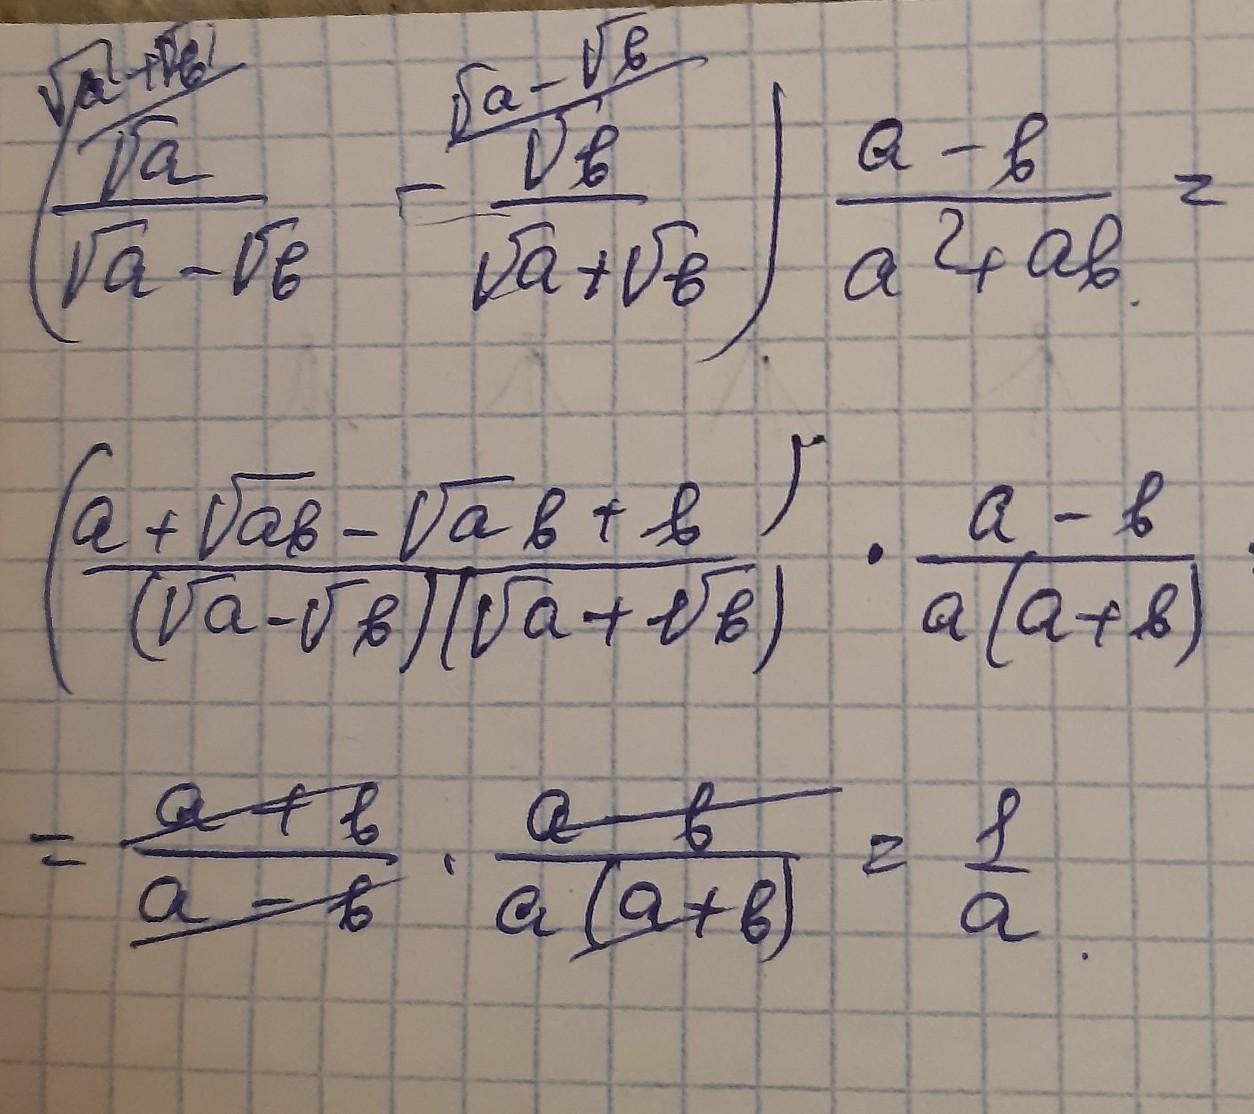 (√a / (√a - √b) ^(√a + √b) - √b / (√a + √b) ^(√a - √b)) (a - b) / (a² + ab) =
((a + √ab - √a b + b) / ((√a - √b)(√a + √b))) · (a - b) / (a(a + b))
= (a + b) / (a - b) · (a - b) / (a(a + b)) = 1 / a